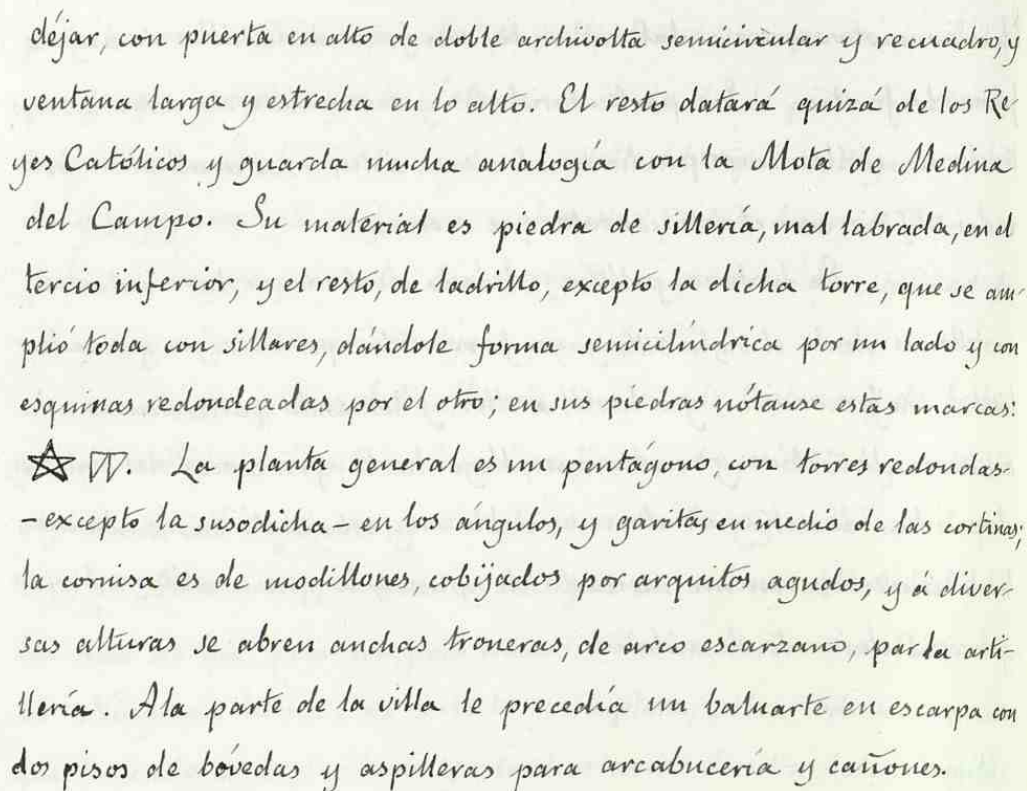 déjar, con puerta en alto de doble archivolta semicircular y recuadro, y
ventana larga y estrecha en lo alto. El resto datará quizá de los Re-
yes Católicos y guarda mucha analogía con la Mota de Medina
del Campo. Su material es piedra de sillería, mal labrada, en el
tercio inferior, y el resto, de ladrillo, excepto la dicha torre, que se am-
plió toda con sillares, dándole forma semicilíndrica por un lado y con
esquinas redondeadas por el otro; en sus piedras nótanse estas marcas:
. La planta general es un pentágono, con torres redondas-
-excepto la susodicha- en los ángulos, y garitas en medio de las cortinas;
la cornisa es de modillones, cobijados por arquitos agudos, y á diver-
sas alturas se abren anchas troneras, de arco escarzano, para la arti-
llería. A la parte de la villa le precedía un baluarte en escarpa con
dos pisos de bóvedas y aspilleras para arcabucería y cañones.